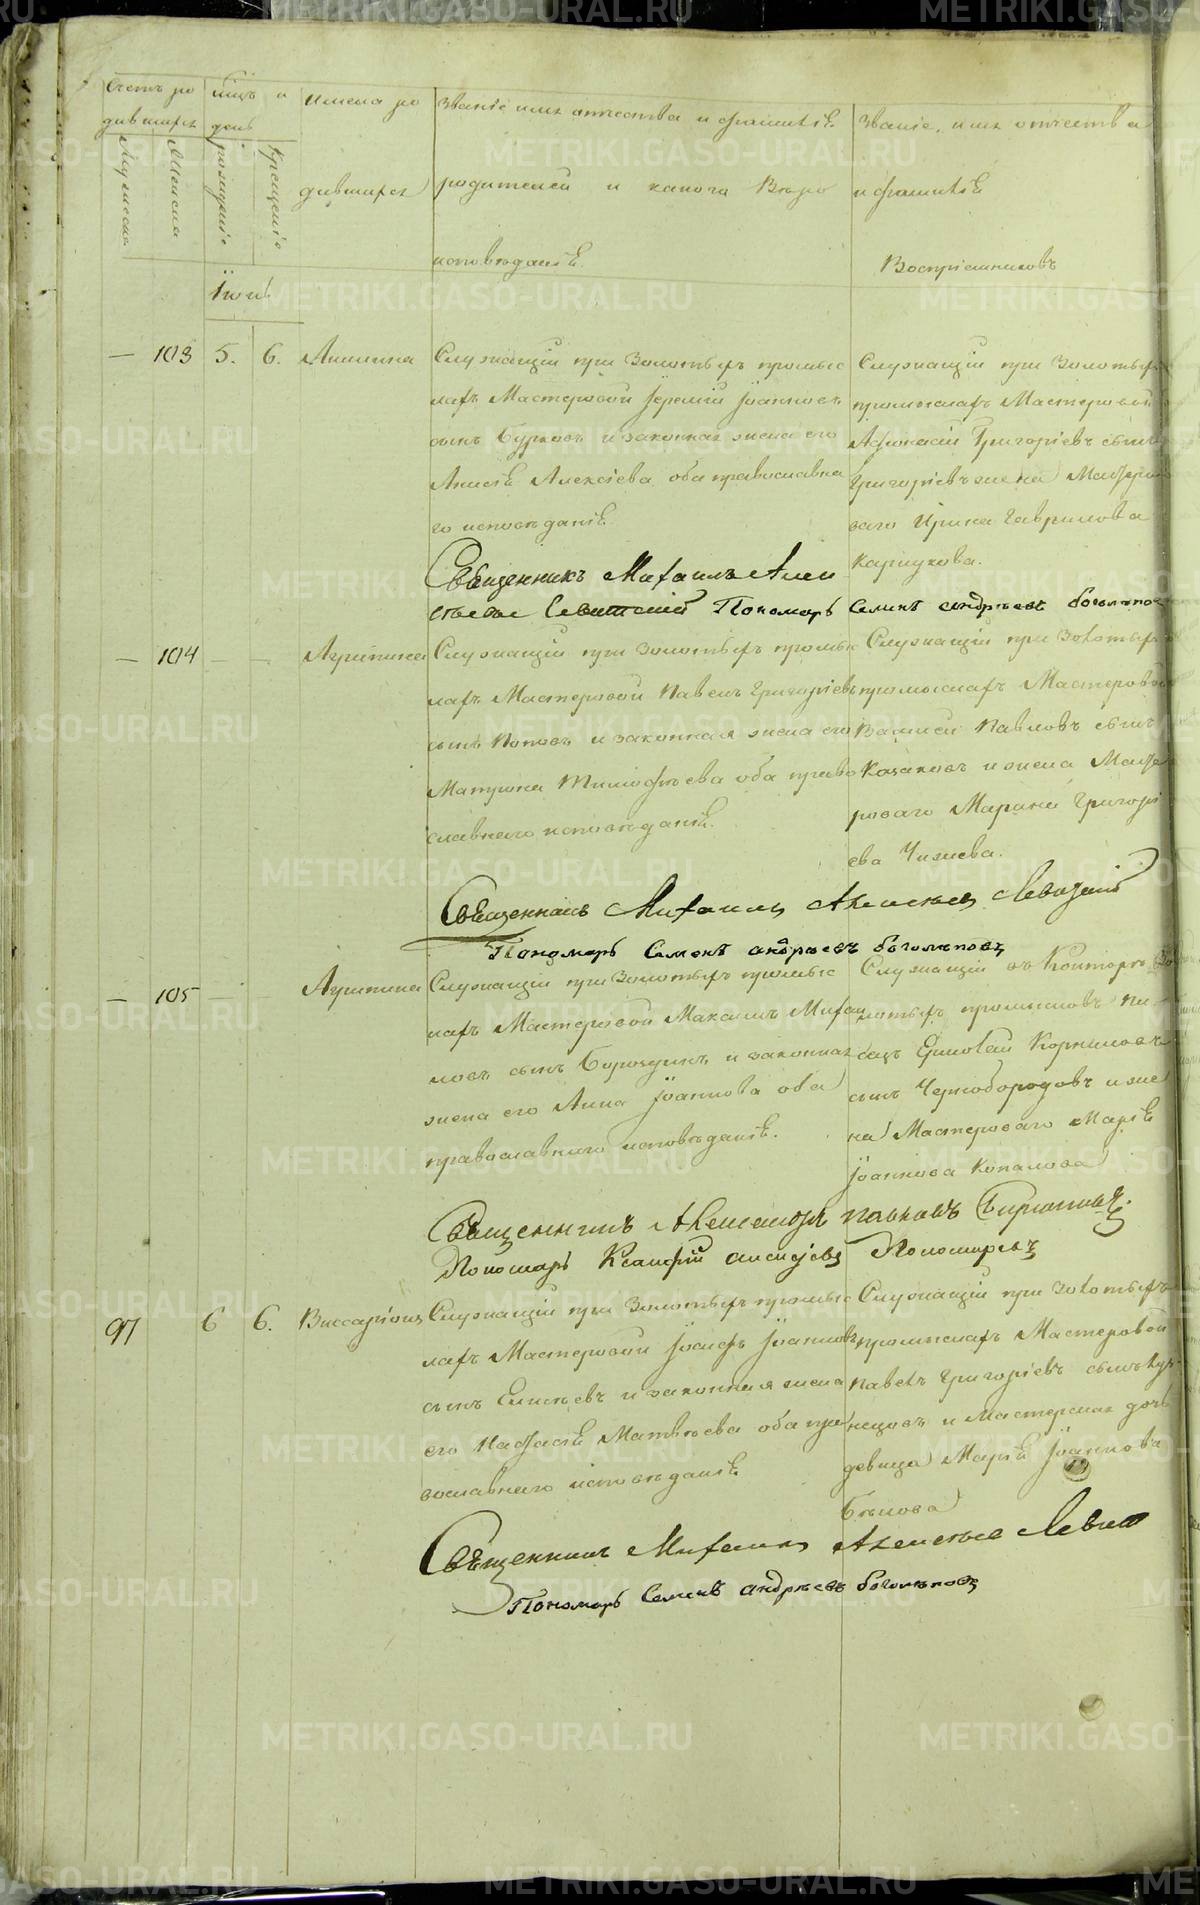 Счетъ ро
дившихся
Мужеска
Женска
мцъ и
день
рожденія
Крещенія
Имена ро
дившихся
Званіе имя отчества и фамилія
родителей и какого Вѣро
исповѣданія.
Званіе, имя отчества
и фамилія
Воспріемниковъ
Іюнь
— 103 5. 6. Акилина
Служащій при Золотыхъ промыс
лахъ Мастеровой Іеремій Іоанновъ
сынъ Бурковъ и законная жена его
Анисія Алексіева оба православна
го исповѣданія.
Служащій при Золотыхъ
промыслахъ Мастеровый
Афонасій Григоріевъ сынъ
Григоріевъ жена Мастеро
ваго Ирина Гаврилова
Карпукова.
Священникъ Михаилъ Алек
сѣевъ Левитскій Пономарь Семенъ андрѣевъ боголѣпов
— 104 — — Агрипина
Служащій при Золотыхъ промыс
лахъ Мастеровой Павелъ Григоріевъ
сынъ Поповъ и законная жена его
Матрона Тимофѣева оба право
славнаго исповѣданія.
Служащій при Золотыхъ
промыслахъ Мастеровой
Василій Павловъ сынъ
Казаковъ и жена Масте
роваго Марина Григорі
ева Чижева.
Священникъ Михаилъ Алексѣевъ Левидскій
Пономарь Семенъ андрѣевъ боголѣповъ
— 105 — Агрипина
Служащій при Золотыхъ промыс
лахъ Мастеровой Максимъ Михаи
ловъ сынъ Бороздинъ и законная
жена его Анна Іоаннова оба
православнаго исповѣданія.
Служащій въ Конторѣ Зо
лотыхъ промысловъ пи
сецъ Ермолай Корниловъ
сынъ Чернобородовъ и же
на Мастероваго Марія
Іоаннова Копалова
Священникъ Александръ павловъ Бирюковъ.
Пономарь Ксанфій алексіевъ Пономаревъ
97 6 6. Виссаріонъ
Служащій при Золотыхъ промыс
лахъ Мастеровой Іосифъ Іоанновъ
сынъ Елисѣевъ и законная жена
его Настасія Матвѣева оба пра
вославнаго исповѣданія
Служащій при Золотыхъ
промыслахъ Мастеровой
Павелъ Григоріевъ сынъ Куз
нецовъ и Мастерская дочь
девица Марія Іоаннова
Бѣлова
Священникъ Михаилъ Алексѣевъ Левит
Пономарь Семенъ андрѣевъ боголѣповъ
METRIKI.GASO-URAL.RU